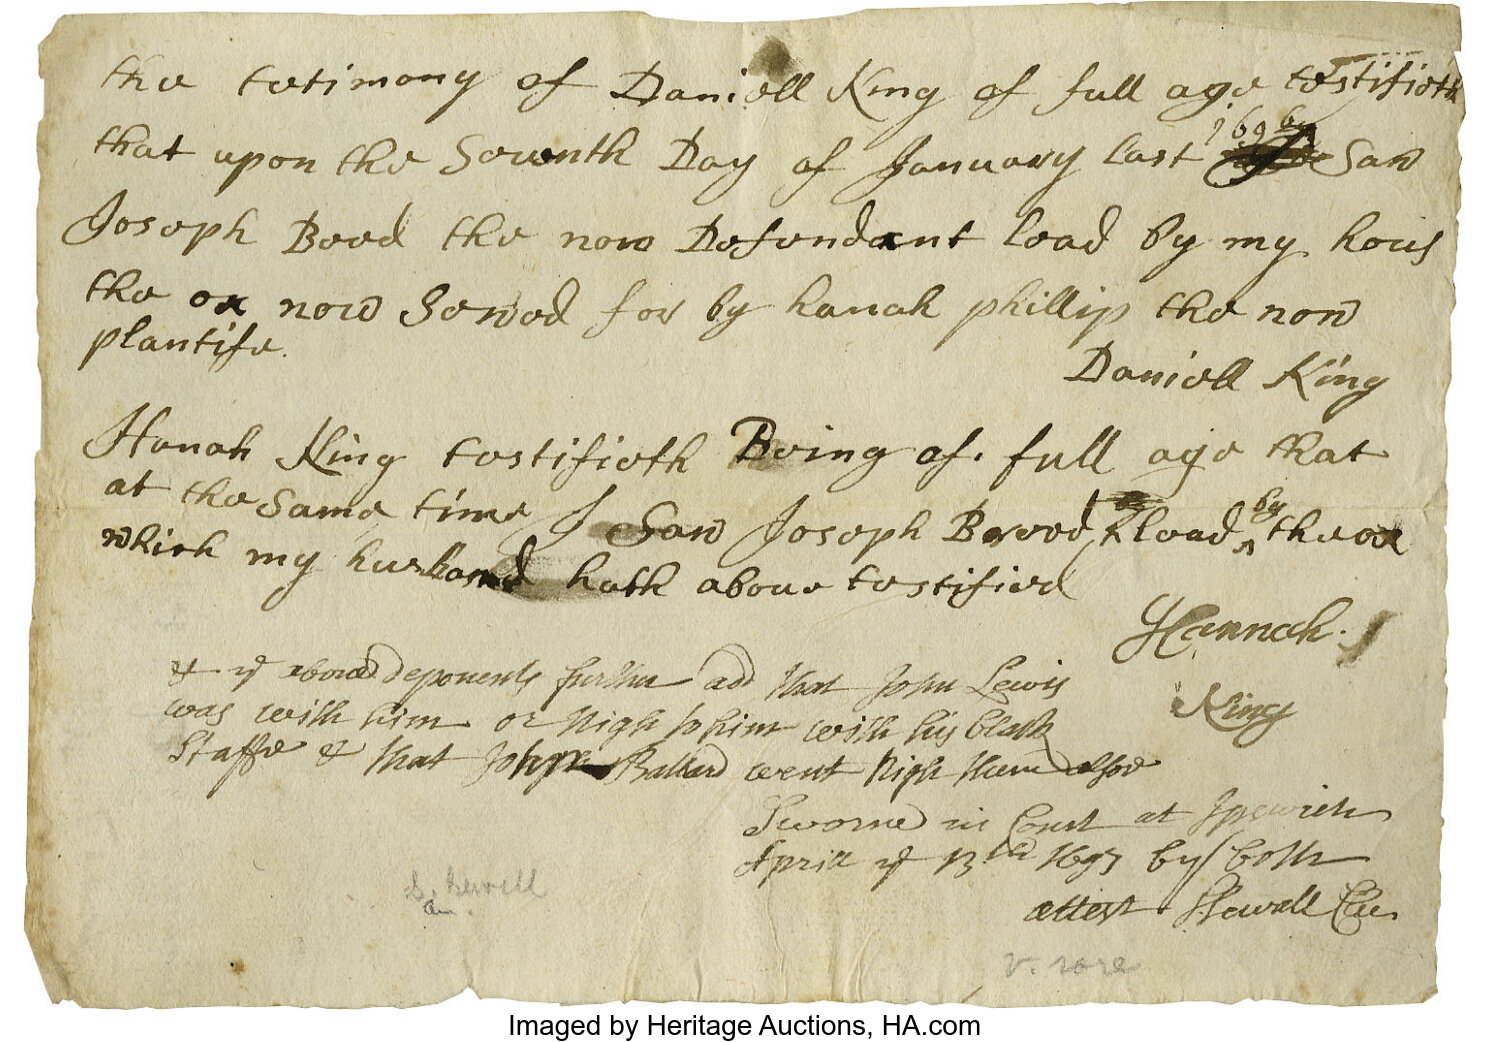 the testimony of Daniell King of full age testifieth
that upon the Seventh Day of January last 1696 Saw
Joseph Beed the now Defendant lead by my hous
the ox now Sewed for by hanah phillip the now
plantife.
Daniell King
Hanah King testifieth Being of full age that
at the Same time I Saw Joseph lead by the ox
which my husband hath above testified
Hannah
King
& ye above deponents further add that John Lewis
was with him or nigh to him with his black
Staffe & that Ballard went nigh them also
Sworne in Court at Ipswich
April ye 13th 1697 by both
attest SSewall Cler
Sewell
Sam.
v. rare
Imaged by Heritage Auctions, HA.com